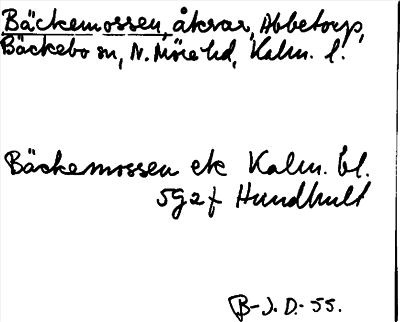 Bäckemossen, åkrar, Abbetorp,
Bäckebo sn, N. Möre hd, Kalm. l.
Bäckemossen ek Kalm. bl.
5g2f Hundhult
B-J. D.- 55.